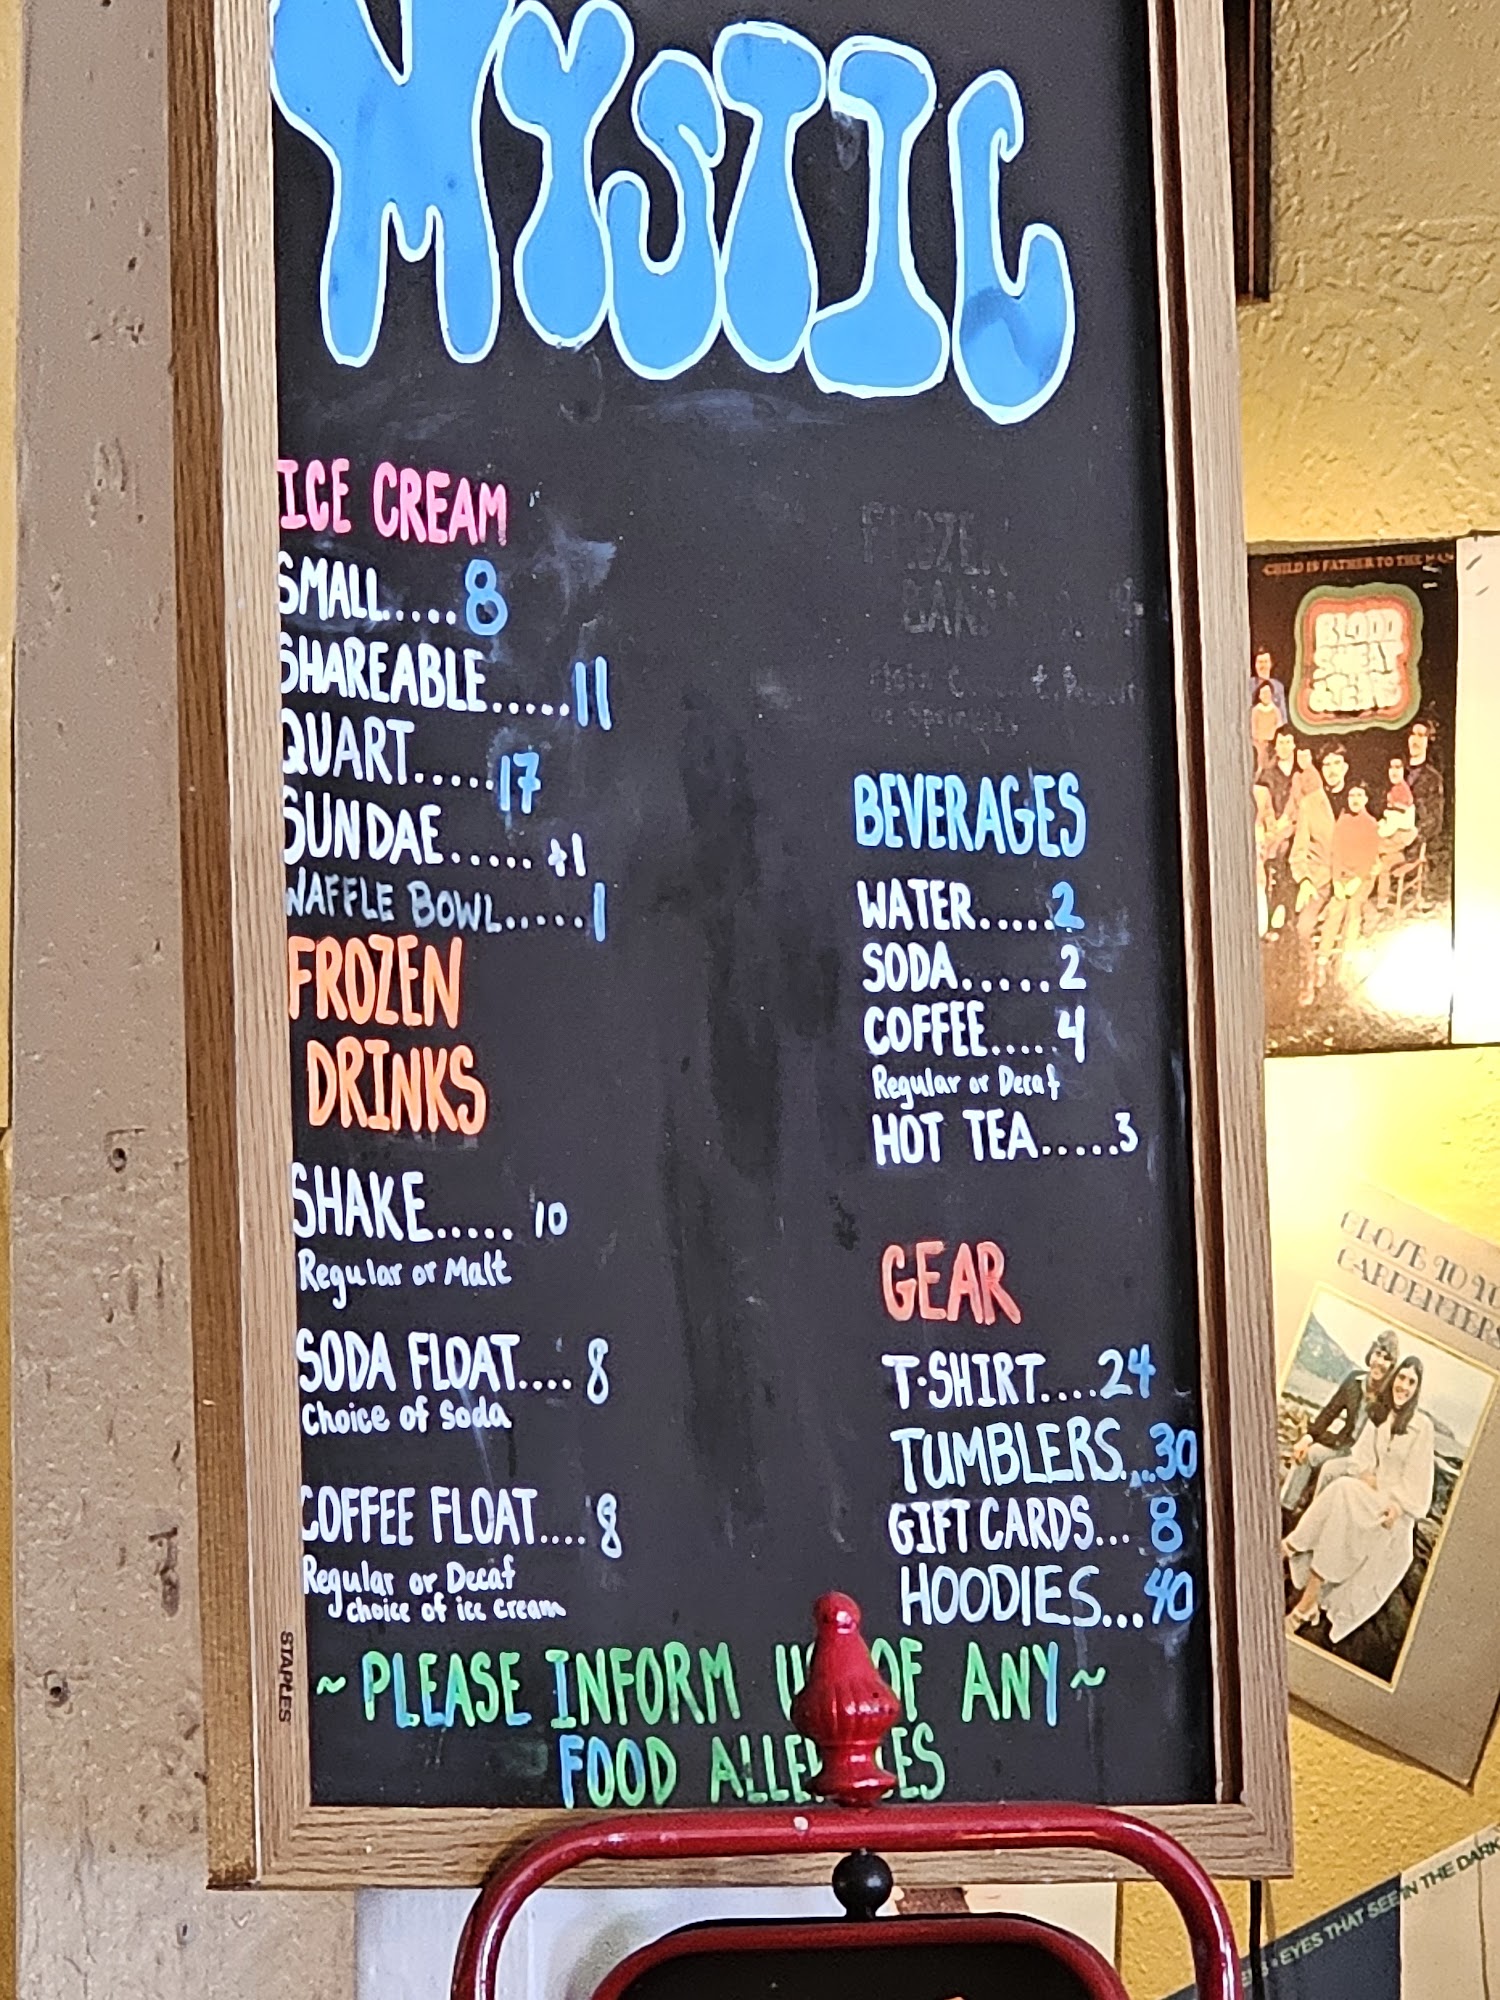 MYSTIC
ICE CREAM
SMALL.....8
SHAREABLE.....11
QUART.....17
SUNDAE.....+1
WAFFLE BOWL.....1
FROZEN
DRINKS
SHAKE..... 10
Regular or Malt
SODA FLOAT.... 8
Choice of Soda
COFFEE FLOAT.... 8
Regular or Decaf
choice of ice cream
FROZEN
BEVERAGES
WATER.....2
SODA.....2
COFFEE.....4
Regular or Decaf
HOT TEA.....3
GEAR
T-SHIRT....24
TUMBLERS....30
GIFT CARDS... 8
HOODIES...40
~PLEASE INFORM US OF ANY~
FOOD ALLERGIES
STAPLES
CHILD IS FATHER TO THE MAN
BLOOD
SWEAT
& TEARS
CLOSE TO YOU
CARPENTERS
• EYES THAT SEE IN THE DARK